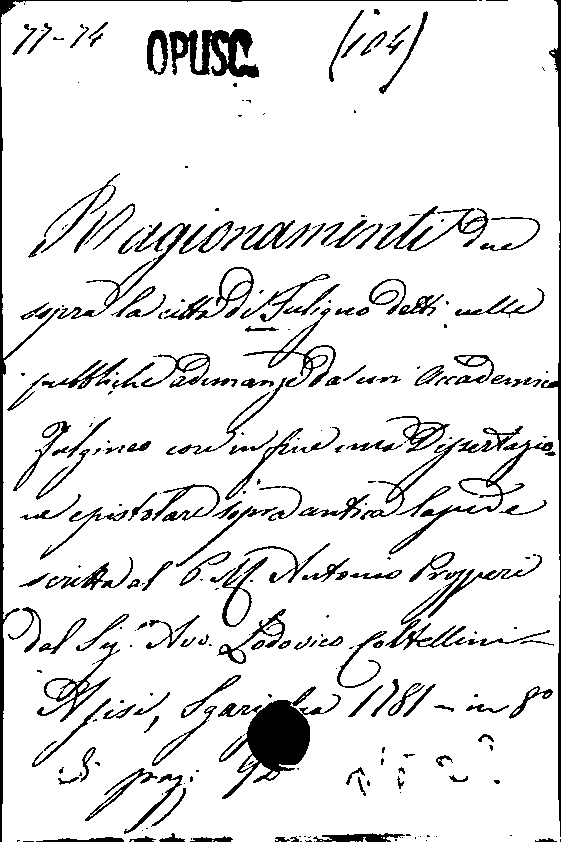 77-74 OPUSC. (104)
Ragionamenti due
sopra la città di Fuligno detti nelle
pubbliche adunanze da un Accademico
Fulgineo con in fine una Dissertazio-
ne epistolare sopra antica lapide
scritta al P. M. Antonio Prosperi
dal Sig.r Avv. Lodovico Coltellini
Assisi, Sgariglia 1781 - in 8º
di pag. 92